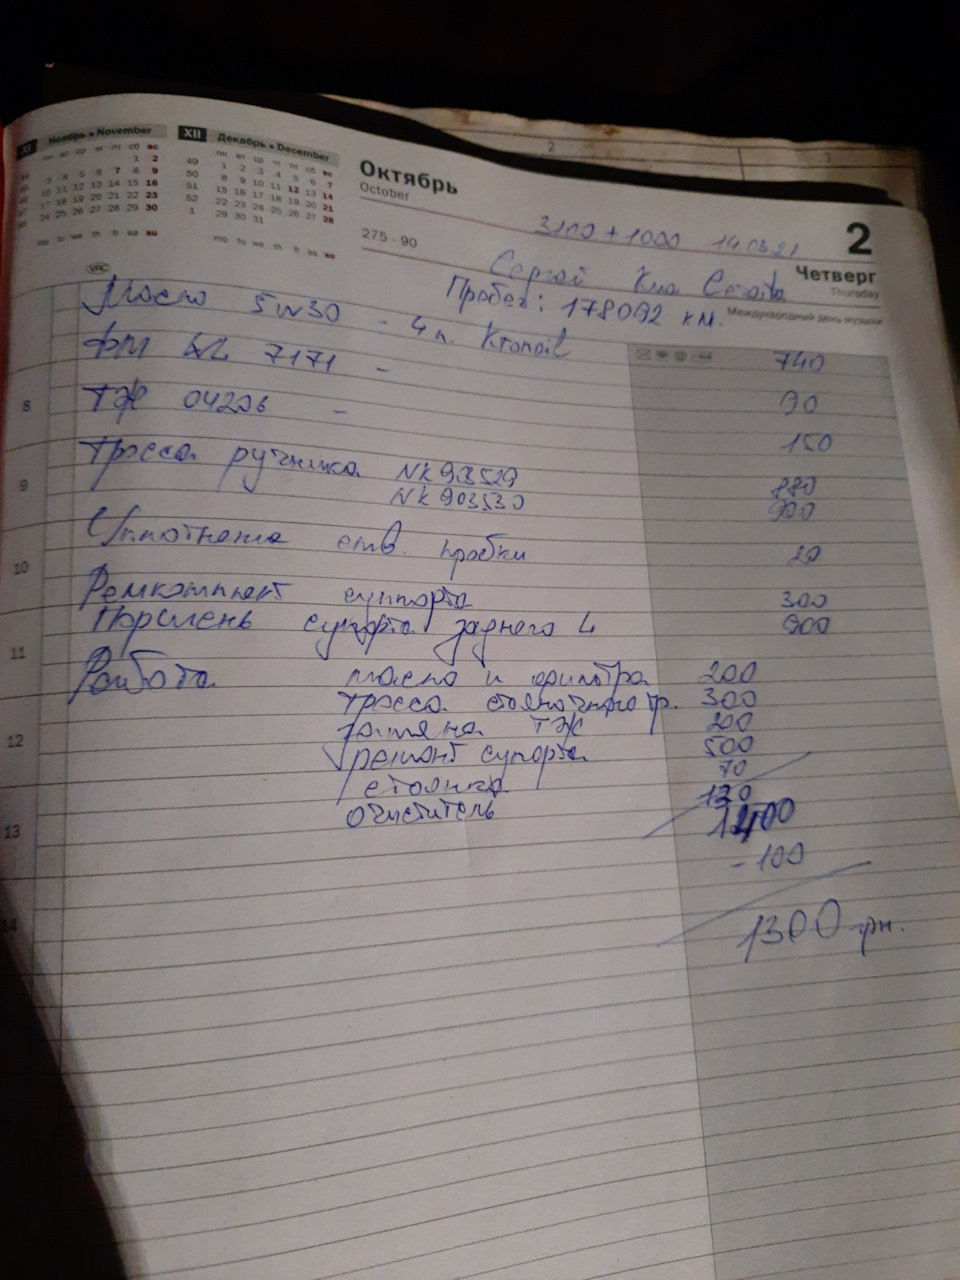 XI Ноябрь • November
XII Декабрь • December
пн вт ср чт пт сб вс
1 2
3 4 5 6 7 8 9
10 11 12 13 14 15 16
17 18 19 20 21 22 23
24 25 26 27 28 29 30
mo tu we th fr sa su
пн вт ср чт пт сб вс
49 1 2 3 4 5 6 7
50 8 9 10 11 12 13 14
51 15 16 17 18 19 20 21
52 22 23 24 25 26 27 28
1 29 30 31
mo tu we th fr sa su
Октябрь
October
275 - 90
2
Четверг
Thursday
Международный день музыки
3100 + 1000 14.03.21
Сергей Киа Cerato
Пробег: 178092 км.
Масло 5w30 - 4л. Kronoil 740
ФМ WL 7171 - 90
ТЖ 04206 - 150
Тросса ручника NK 903529 880
NK 903530 900
Уплотнение отв. пробки 20
Ремкомплект суппорта 300
Поршень супорта заднего 900
Работа масло и фильтра 200
тросса стояночного тр. 300
замена ТЖ 200
ремонт супорта 500
70
стоянка 130
очиститель 1400
- 100
1300 грн.
8
9
10
11
12
13
14